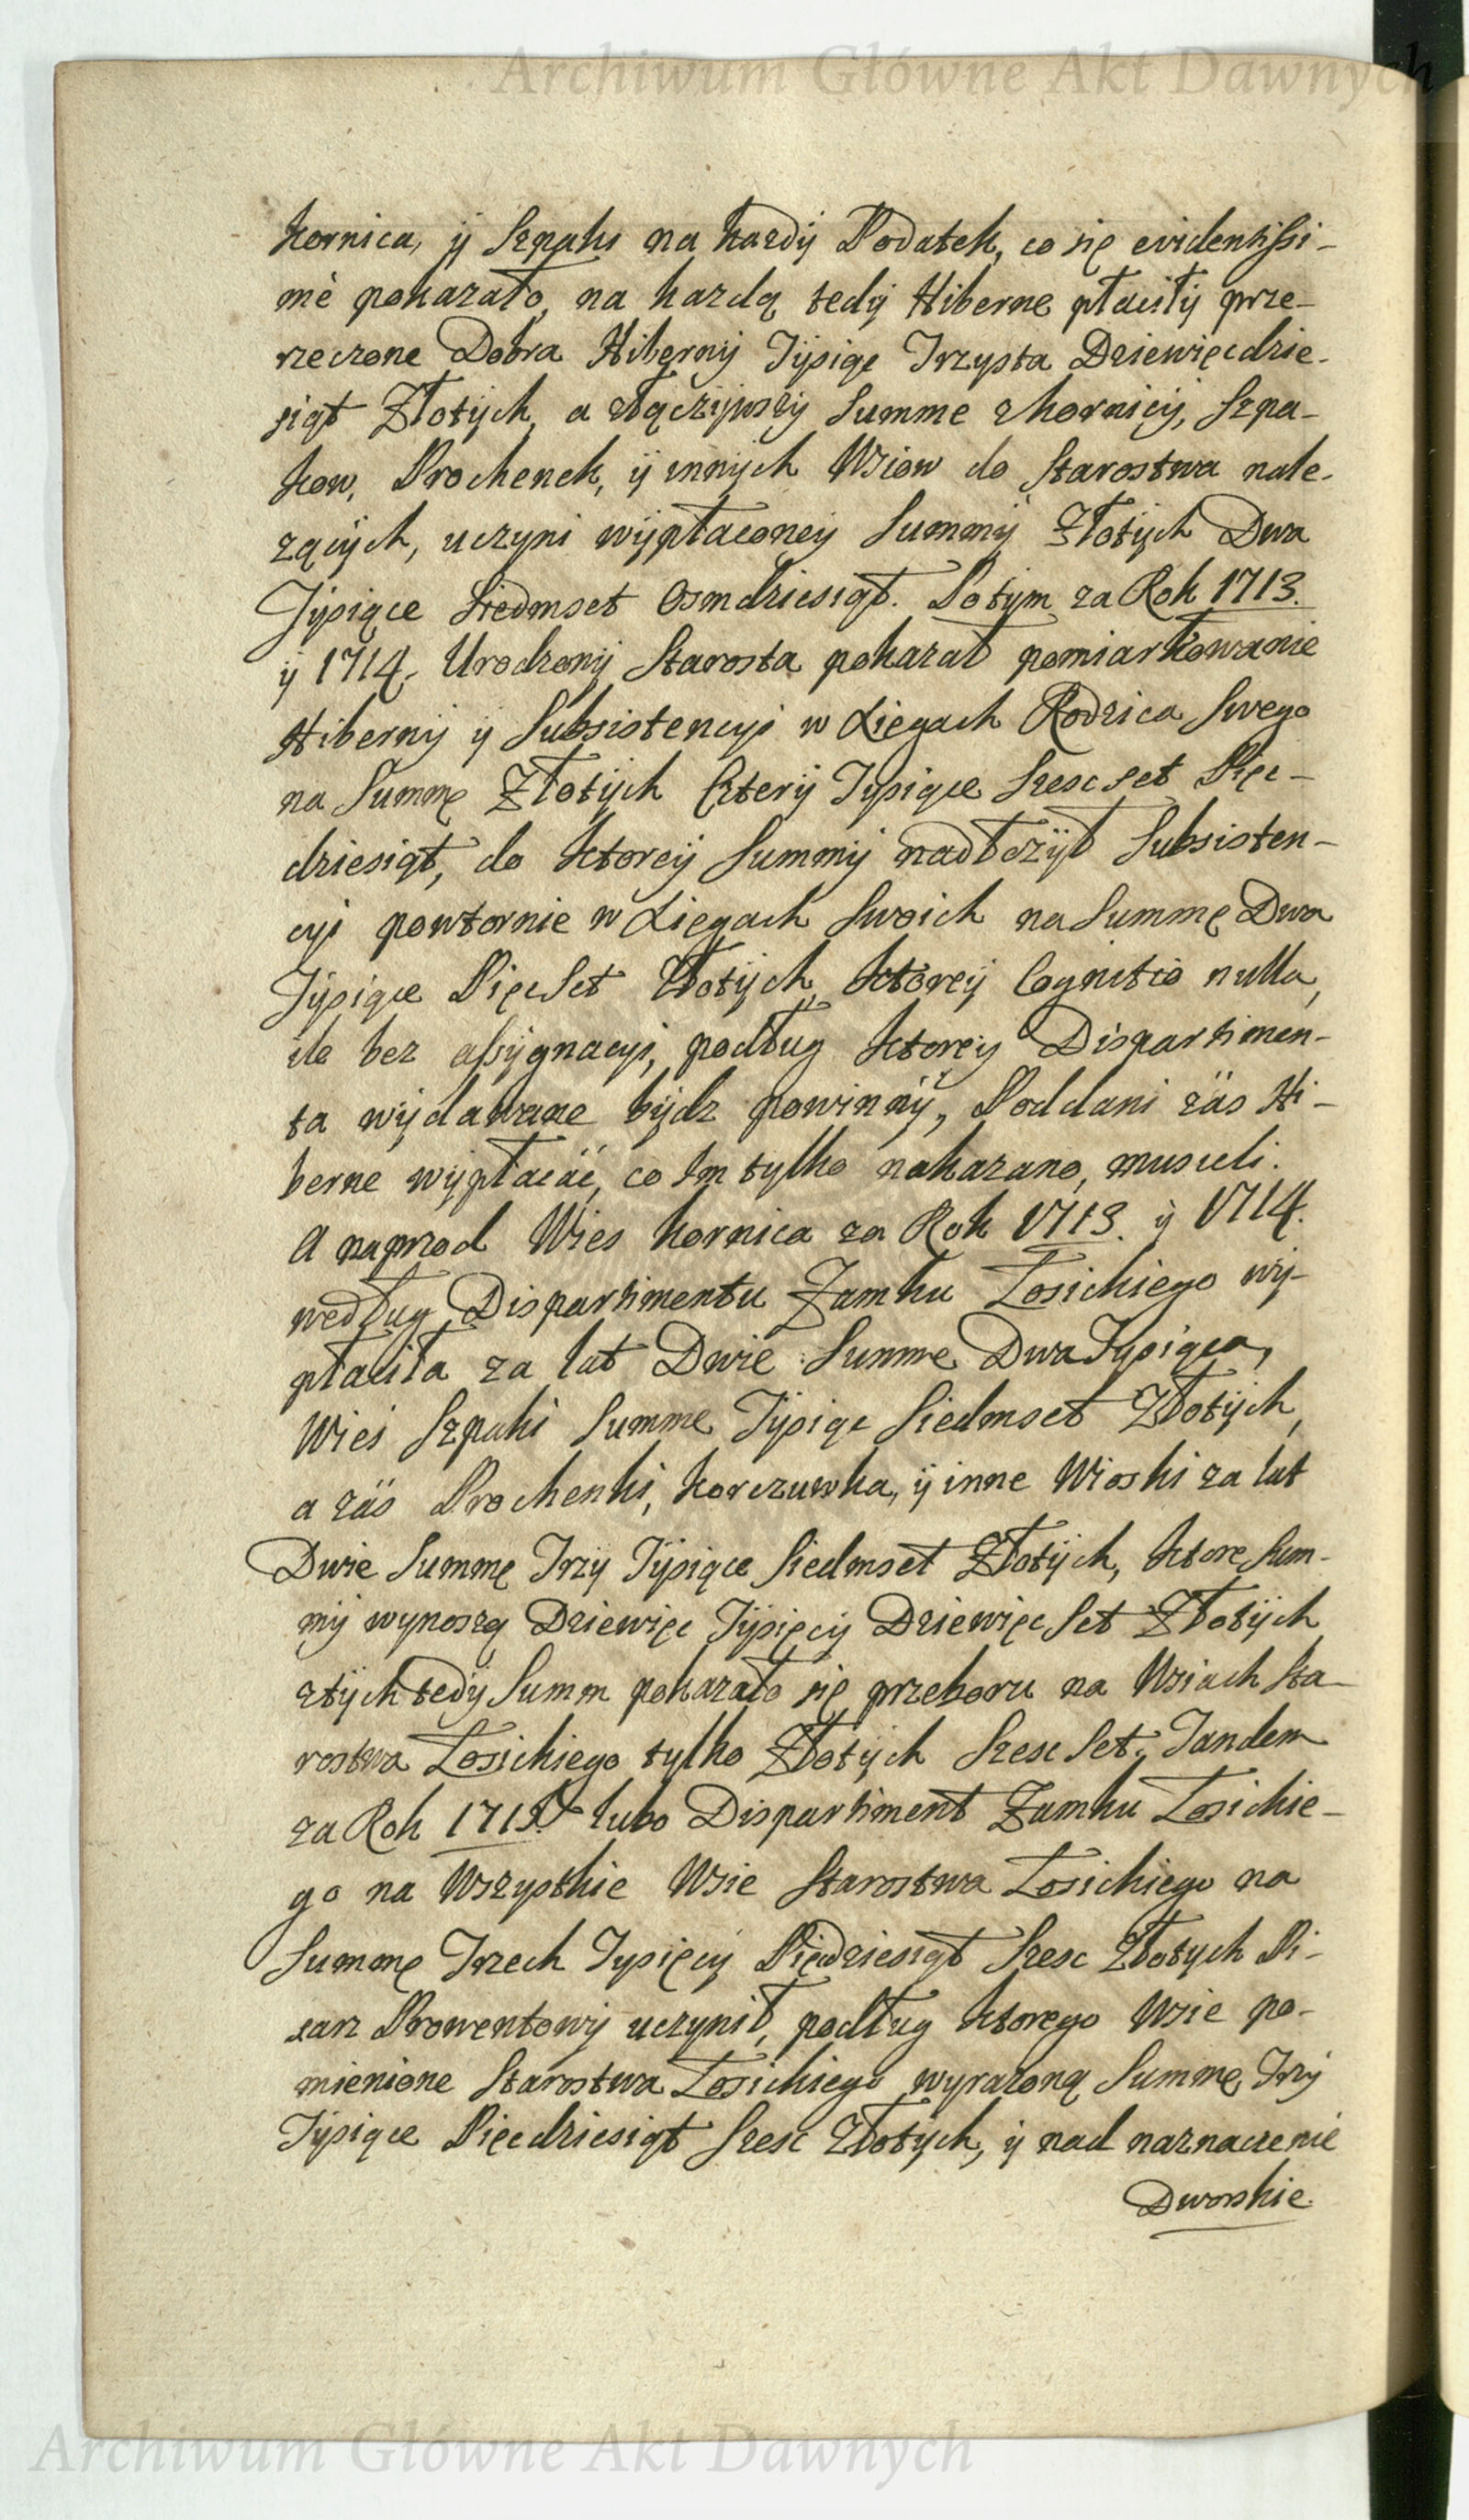 Archiwum Główne Akt Dawnych
Kornica, ÿ Szpaki na każdÿ Podatek, co się evidentissi-
mè pokazało, na kazdą tedÿ Hiberne płaciłÿ prze-
rzeczone Dobra Hibernÿ Tÿsiąc Trzysta Dziewięcdzie-
siąt Złotÿch, a złączÿwszÿ Summe z Kornicÿ, Szpa-
kow, Prochenek, ÿ innÿch Wsiow do Starostwa nale-
zącÿch, uczyni wÿpłaconeÿ Summÿ Złotÿch Dwa
Tÿsiące Siedmset Osmdziesiąt. Potÿm za Rok 1713.
ÿ 1714. Urodzonÿ Starosta pokazał pomiarkowanie
Hibernÿ ÿ Subsistencÿi w Xięgach Rodzica Swego
na Summę Złotÿch Czterÿ Tysiące Szescset Pięc-
dziesiąt, do Ktoreÿ Summÿ nadłożÿł Subsisten-
cÿi powtornie w Xięgach Swoich na Summę Dwa
Tÿsiące PięcSet Złotÿch, Ktoreÿ Cognitio nulla,
ile bez assÿgnacyi, podług Ktoreÿ Dispartimen-
ta wÿdawane bÿdz powinnÿ, Poddani zäs Hi-
berne wÿpłacać, co Im tylko nakazano, musieli.
A naprzod Wies Kornica za Rok 1713. ÿ 1714.
według Dispartimentu Zamku Łosickiego wÿ-
płaciła za lat Dwie Summe Dwa Tysiąca,
Wieś Szpaki Summe Tÿsiąc Siedmset Złotÿch,
a zäs Prochenki, Korczuwka, ÿ inne Wioski za lat
Dwie Summę Trzÿ Tÿsiące Siedmset Złotÿch, Ktore Sum-
mÿ wynoszą Dziewięc Tÿsięcÿ Dziewięc Set Złotÿch
z tÿch tedÿ Summ pokazało się przeboru na Wsiach Sta-
rostwa Łosickiego tylko Złotÿch Szesc Set, Tandem
za Rok 1715. lubo Dispartiment Zamku Łosickie-
go na Wszystkie Wsie Starostwa Łosickiego na
Summę Trzech Tysięcÿ Pięcdziesiąt Szesc Złotych Pi-
sarz Prowentowÿ uczynił, podług Ktorego Wsie po-
mienione Starostwa Łosickiego wyrazoną Summę Trzÿ
Tÿsiące Pięcdziesiąt Szesc Złotÿch, ÿ nad naznaczenie
Dworskie
Archiwum Główne Akt Dawnych